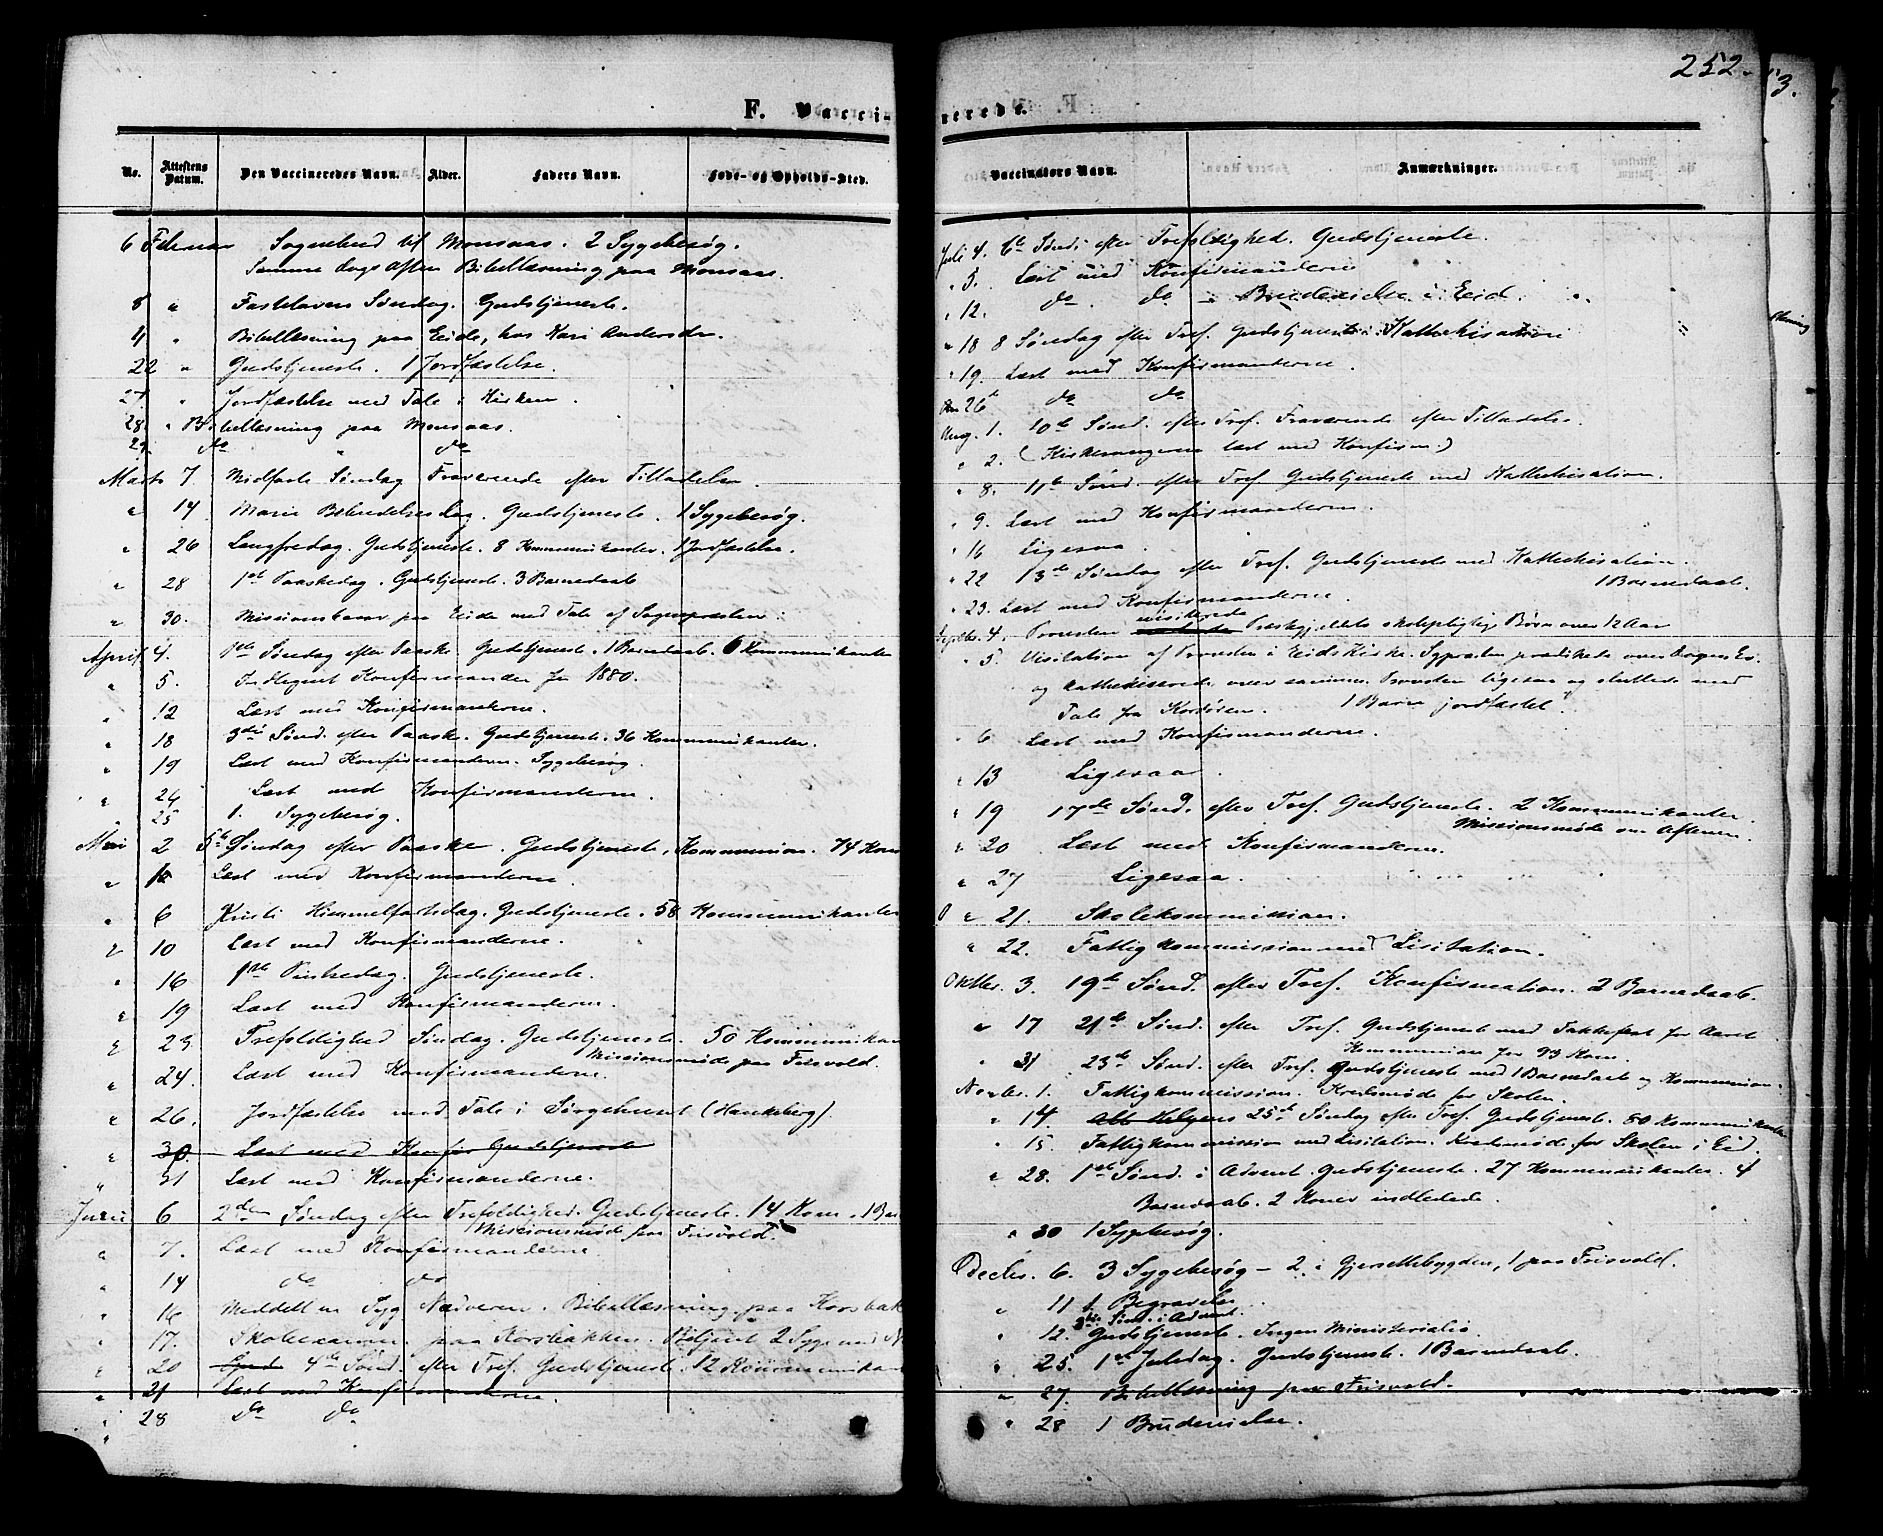 252
3.
F. Vaccinerede.
No.
Attestens Datum.
Den Vaccineredes Navn.
Alder.
Faders Navn.
Føde- og Opholds-Sted.
Vaccinators Navn.
Anmærkninger.
6 Februar Sognebud til Monsaas. 2 Sygebesøg.
Samme Dags Aften Bibellæsning paa Monsaas.
8 " Fastelavens Søndag. Gudstjeneste.
" Bibellæsning paa Eide, hos Kari Andersdr.
22 " Gudstjeneste. 1 Jordfæstelse.
27. " Jordfæstelse med Tale i Kirken.
28. " Bibellæsning paa Monsaas.
29. do " do
Marts 7 Midfaste Søndag Fraværende efter Tilladelse.
" 14 Mariæ Bebudelsesdag. Gudstjeneste. 1 Sygebesøg.
" 26 Langfredag. Gudstjeneste. 8 Kommunikanter. 1 Jordfæstelse.
" 28 1ste Paaskedag. Gudstjeneste. 3 Barnedaab
" 30. Missionsbasar paa Eide med Tale af Sognepræsten.
April 4. 1ste Søndag efter Paaske. Gudstjeneste. 1 Barnedaab. 6 Kommunikanter
" 5. Indtegnet Konfirmander for 1880.
" 12 Læst med Konfirmanderne.
" 18 3die Sønd. efter Paaske. Gudstjeneste. 36 Kommunikanter.
" 19 Læst med Konfirmanderne. Sygebesøg.
" 24 Læst med Konfirmanderne.
" 25 1. Sygebesøg.
Mai 2 5te Søndag efter Paaske. Gudstjeneste, Kommunion. 74 Kom
" Læst med Konfirmanderne.
" 6 Kristi Himmelfartsdag. Gudstjeneste. 58 Kommunikanter
" 10 Læst med Konfirmanderne.
" 16 1ste Pinsedag. Gudstjeneste.
" 19 Læst med Konfirmanderne.
" 23 Trefoldighed Søndag. Gudstjeneste. 50 Kommunikan
Missionsmøde paa Frisvold.
" 24. Læst med Konfirmanderne.
" 26. Jordfæstelse med Tale i Sørgehuset
" 30. Læst med Konfir Gudstjeneste
" 31 Læst med Konfirmanderne.
Juni 6 2den Søndag efter Trefoldighed. Gudstjeneste. 14 Kom. 1 Bar
Missionsmøde paa Frisvold.
" 7. Læst med Konfirmanderne.
" 14 do do
" 16 Meddelt en Syg Nadveren. Bibellæsning paa Korsbak
" 17. Skoleexamen paa Korsbakken. Betjent 2 Syge med N
" 20 Gud 4de Sønd. efter Tref. Gudstjeneste. 12 Kommunikan
" 21 Læst med Konfirmanderne.
" 28 do do
Juli 4. 6te Sønd. efter Trefoldighed. Gudstjeneste.
" 5. Læst med Konfirmanderne
" 12. do. do – Brudevielse i Eid.
" 18 8 Søndag efter Tref. Gudstjeneste. Katthekisation
" 19. Læst med Konfirmanderne.
Den 26de do do
Aug. 1. 10de Sønd. efter Tref. Fraværende efter Tilladelse.
" 2. (Kirkesangeren læst med Konfirm.)
" 8. 11te Sønd. efter Tref Gudstjeneste med Kathekisation.
" 9. Læst med Konfirmanderne.
" 16 Ligesaa.
" 22 13de Søndag efter Tref. Gudstjeneste med Kathekisation.
1 Barnedaab.
" 23. Læst med Konfirmanderne.
Septbr. 4. Provsten visiterede Præstegjeldets skolepligtige Børn over 12 Aar
" 5. Visitation af Provsten i Eids Kirke. Sgpræsten prædikede over Dagens Ev.
og kathekiserede over samme. Provsten ligesaa og sluttede med
Tale fra Kordøren. 1 Barn jordfæstet.
" 6 Læst med Konfirmanderne.
" 13 Ligesaa.
" 19 17de Sønd. efter Tref. Gudstjeneste. 2 Kommunikanter.
Missionsmøde om Aftenen.
" 20 Læst med Konfirmanderne.
" 27 Ligesaa.
" 21. Skolekommission.
" 22. Fattigkommission med Lisitation.
Oktbr. 3. 19de Sønd. efter Tref. Konfirmation. 2 Barnedaab.
" 17 21de Sønd. efter Tref. Gudstjeneste med Takkefest for Aaret
Kommunion for 93 Kom.
" 31 23de Sønd. efter Tref. Gudstjeneste med 1 Barnedaab og Kommunion.
Novbr. 1. Fattigkommission. Kredsmøde for Skolen.
" 14. Alle Helgens 25de Søndag efter Tref. Gudstjeneste. 80 Kommunikanter
" 15. Fattigkommission med Lisitation. Kredsmøde for Skolen i Eid.
" 28. 1ste Sønd. i Advent. Gudstjeneste. 27 Kommunikanter. 4
Barnedaab. 2 Koner indledede.
" 30 1 Sygebesøg.
Decbr. 6. 3 Sygebesøg – 2 i Gjersetbygden, 1 paa Frisvold.
" 11 1 Begravelse.
3die Sønd. i Advent.
" 12. Gudstjeneste. Ingen Ministerialia.
" 25. 1ste Juledag. Gudstjeneste. 1 Barnedaab.
" 27. Bibellæsning paa Frisvold.
" 28 1 Brudevielse.